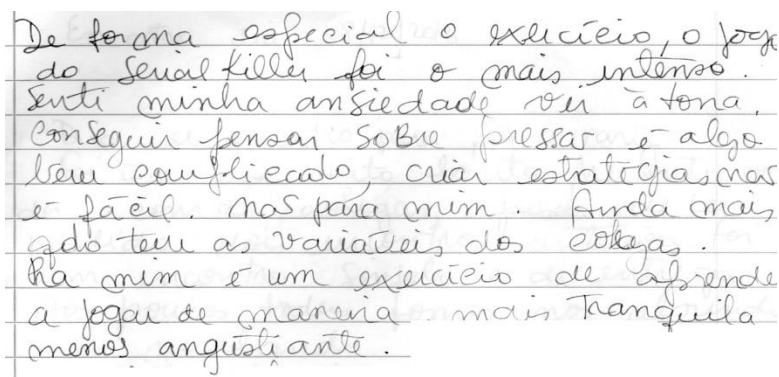 De forma especial o exercício, o jogo
do Serial Killer foi o mais intenso.
Senti minha ansiedade vir à tona,
conseguir pensar sobre pressão é algo
bem complicado, criar estratégias nao
é fácil. nao para mim. Ainda mais
qdo tem as variaveis dos colegas.
Pra mim é um exercício de aprende
a jogar de maneira mais tranquila
menos angustiante.